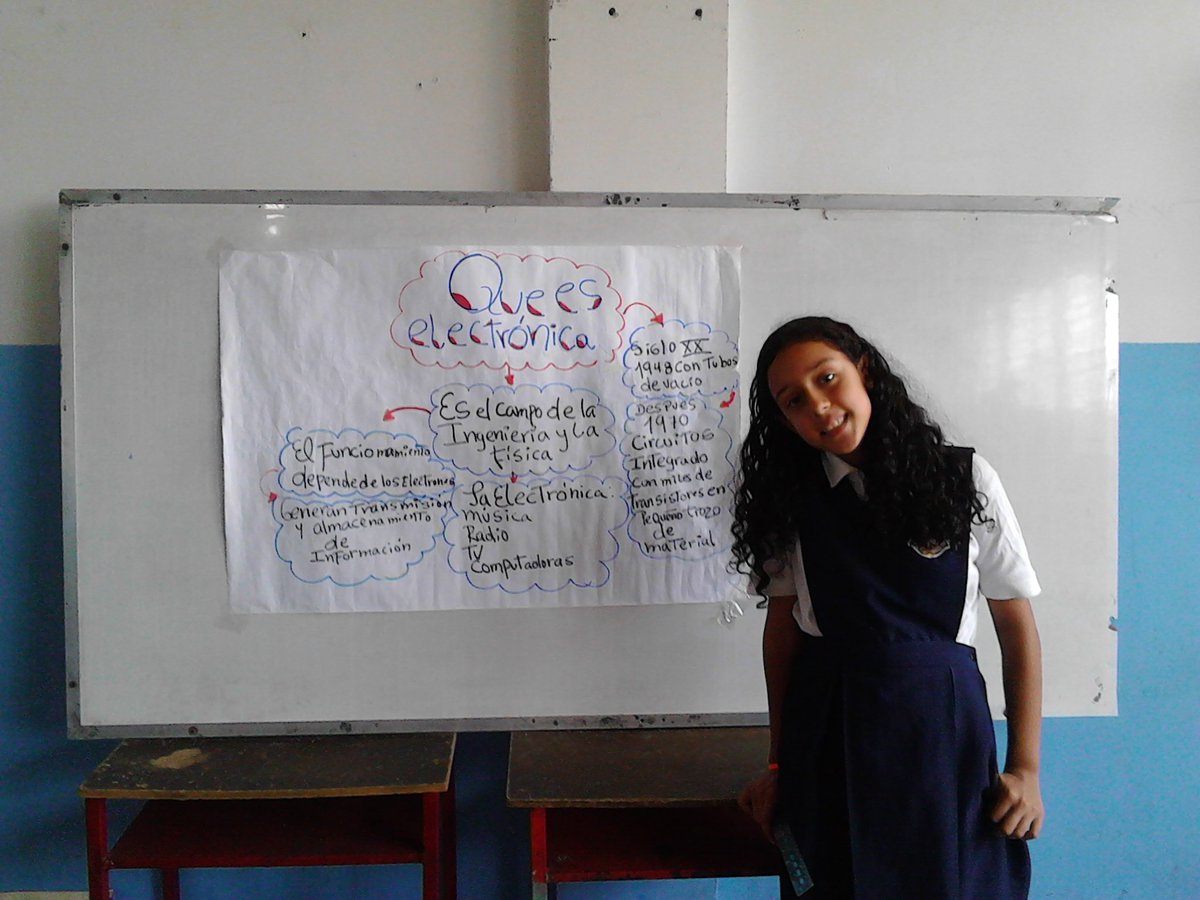 Que es
electrónica
Siglo XX
1948 con Tubos
de vacio
Despues
1970
Circuitos
Integrado
con miles de
Transistores en
Pequeño trozo
de
material
Es el campo de la
Ingenieria y La
física
El Funcionamiento
depende de los Electrones
Generan Transmisión
y almacenamiento
de
Información
La Electrónica:
música
Radio
TV
Computadoras